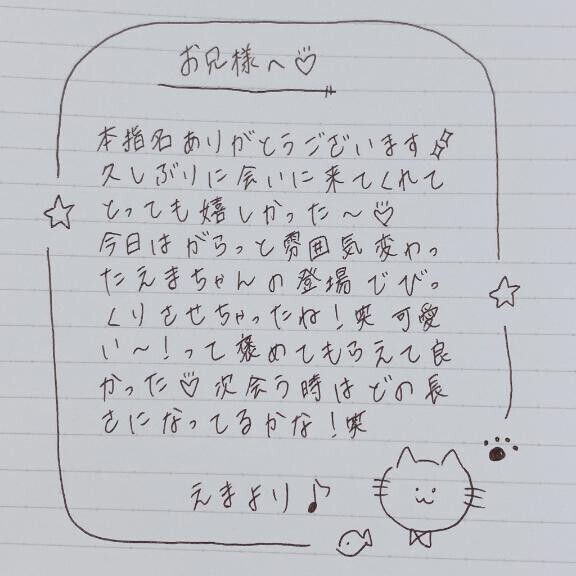 お兄様へ♡
本指名ありがとうございます
久しぶりに会いに来てくれて
とっても嬉しかった〜♡
今日はがらっと雰囲気変わっ
たえまちゃんの登場でびっ
くりさせちゃったね！笑 可愛
い〜！って褒めてもらえて良
かった♡次会う時はどの長
さになってるかな！笑
えまより♪